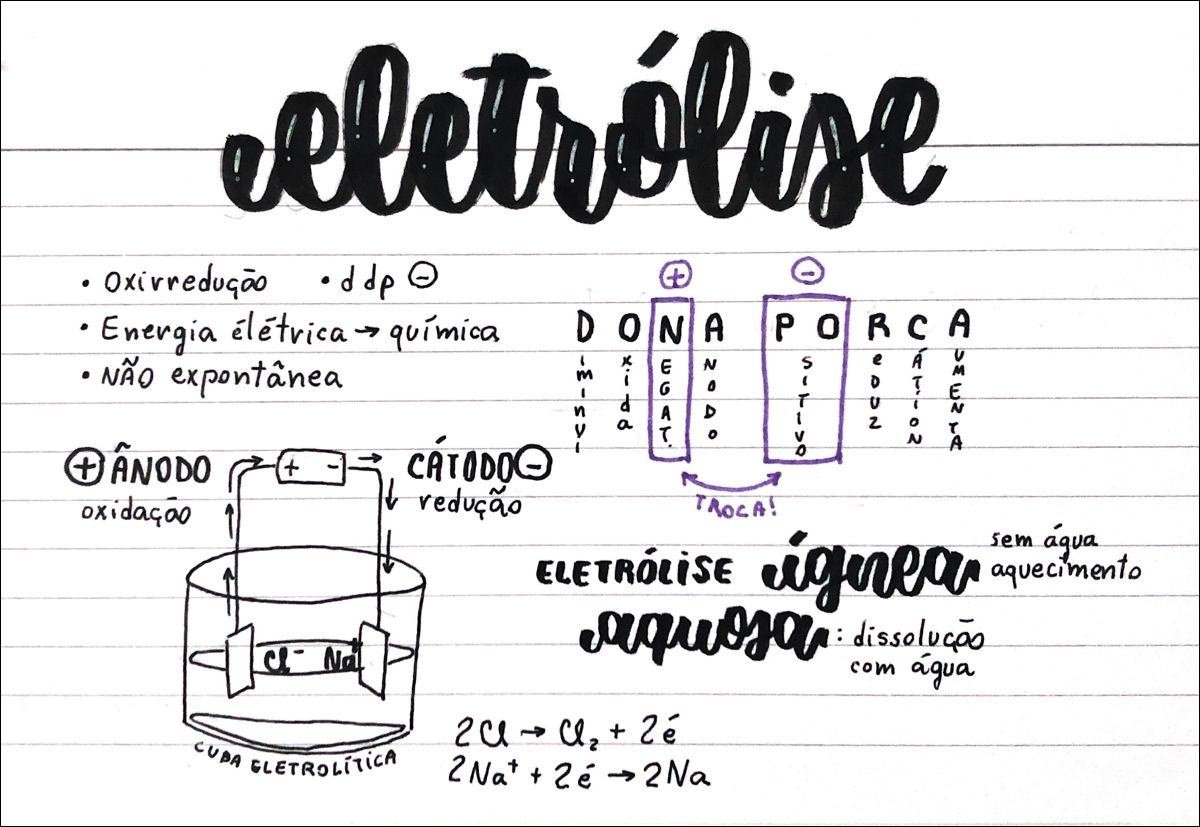 eletrólise
• Oxirredução • ddp ⊖
• Energia élétrica → química
• NÃO expontânea
⊕ ⊖
D O N A P O R C A
Diminui Oxida NEGAT. ANODO POSITIVO REDUZ CÁTION AUMENTA
TROCA!
⊕ ÂNODO
oxidação
+ -
CÁTODO ⊖
redução
Cl⁻ Na⁺
CUBA ELETROLÍTICA
ELETRÓLISE ígnea sem água
aquecimento
aquosa: dissolução
com água
2Cl → Cl₂ + 2é
2Na⁺ + 2é → 2Na